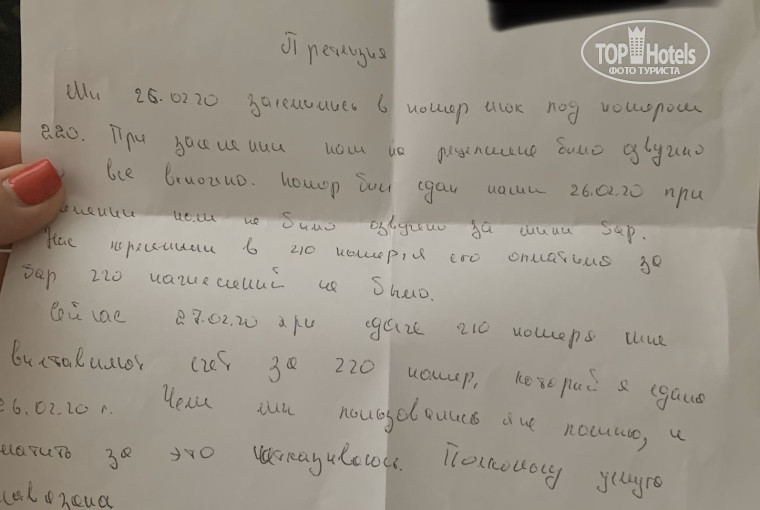 TOP Hotels
ФОТО ТУРИСТА
Претизия
Ми 26.02.20 заселились в номер люк под номером
220. При заселении нам на рецепшене било озвучено
все вкючено. Номор был сдан нами 26.02.20 при
нам не било озвучено за мини бар.
Нас переселили в 210 номер, я его оплатила за
бар 220 начислений не было.
Сейчас 27.02.20 при сдаче 210 номеря мне
виставляют счет за 220 номер, который я сдала
26.02.20 г. Чем ми пользовались я не помню, и
за это отказиваюсь. Поскольку услуга